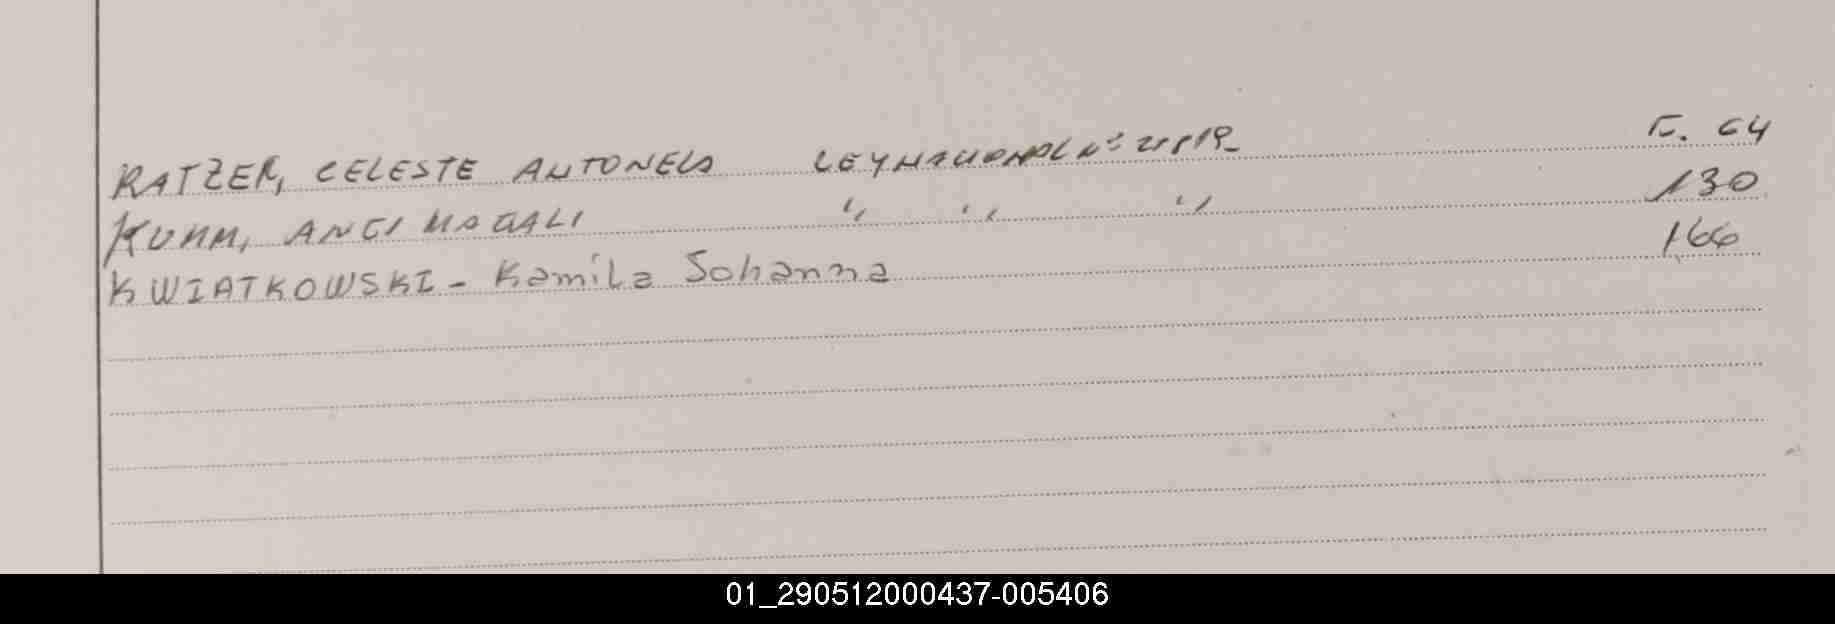 KATZER, CELESTE ANTONELA LEY NACIONAL Nº F. 64
KUHM, ANGI MAGALI " " " 130
KWIATKOWSKI - Kamila Johanna 166
01_290512000437-005406